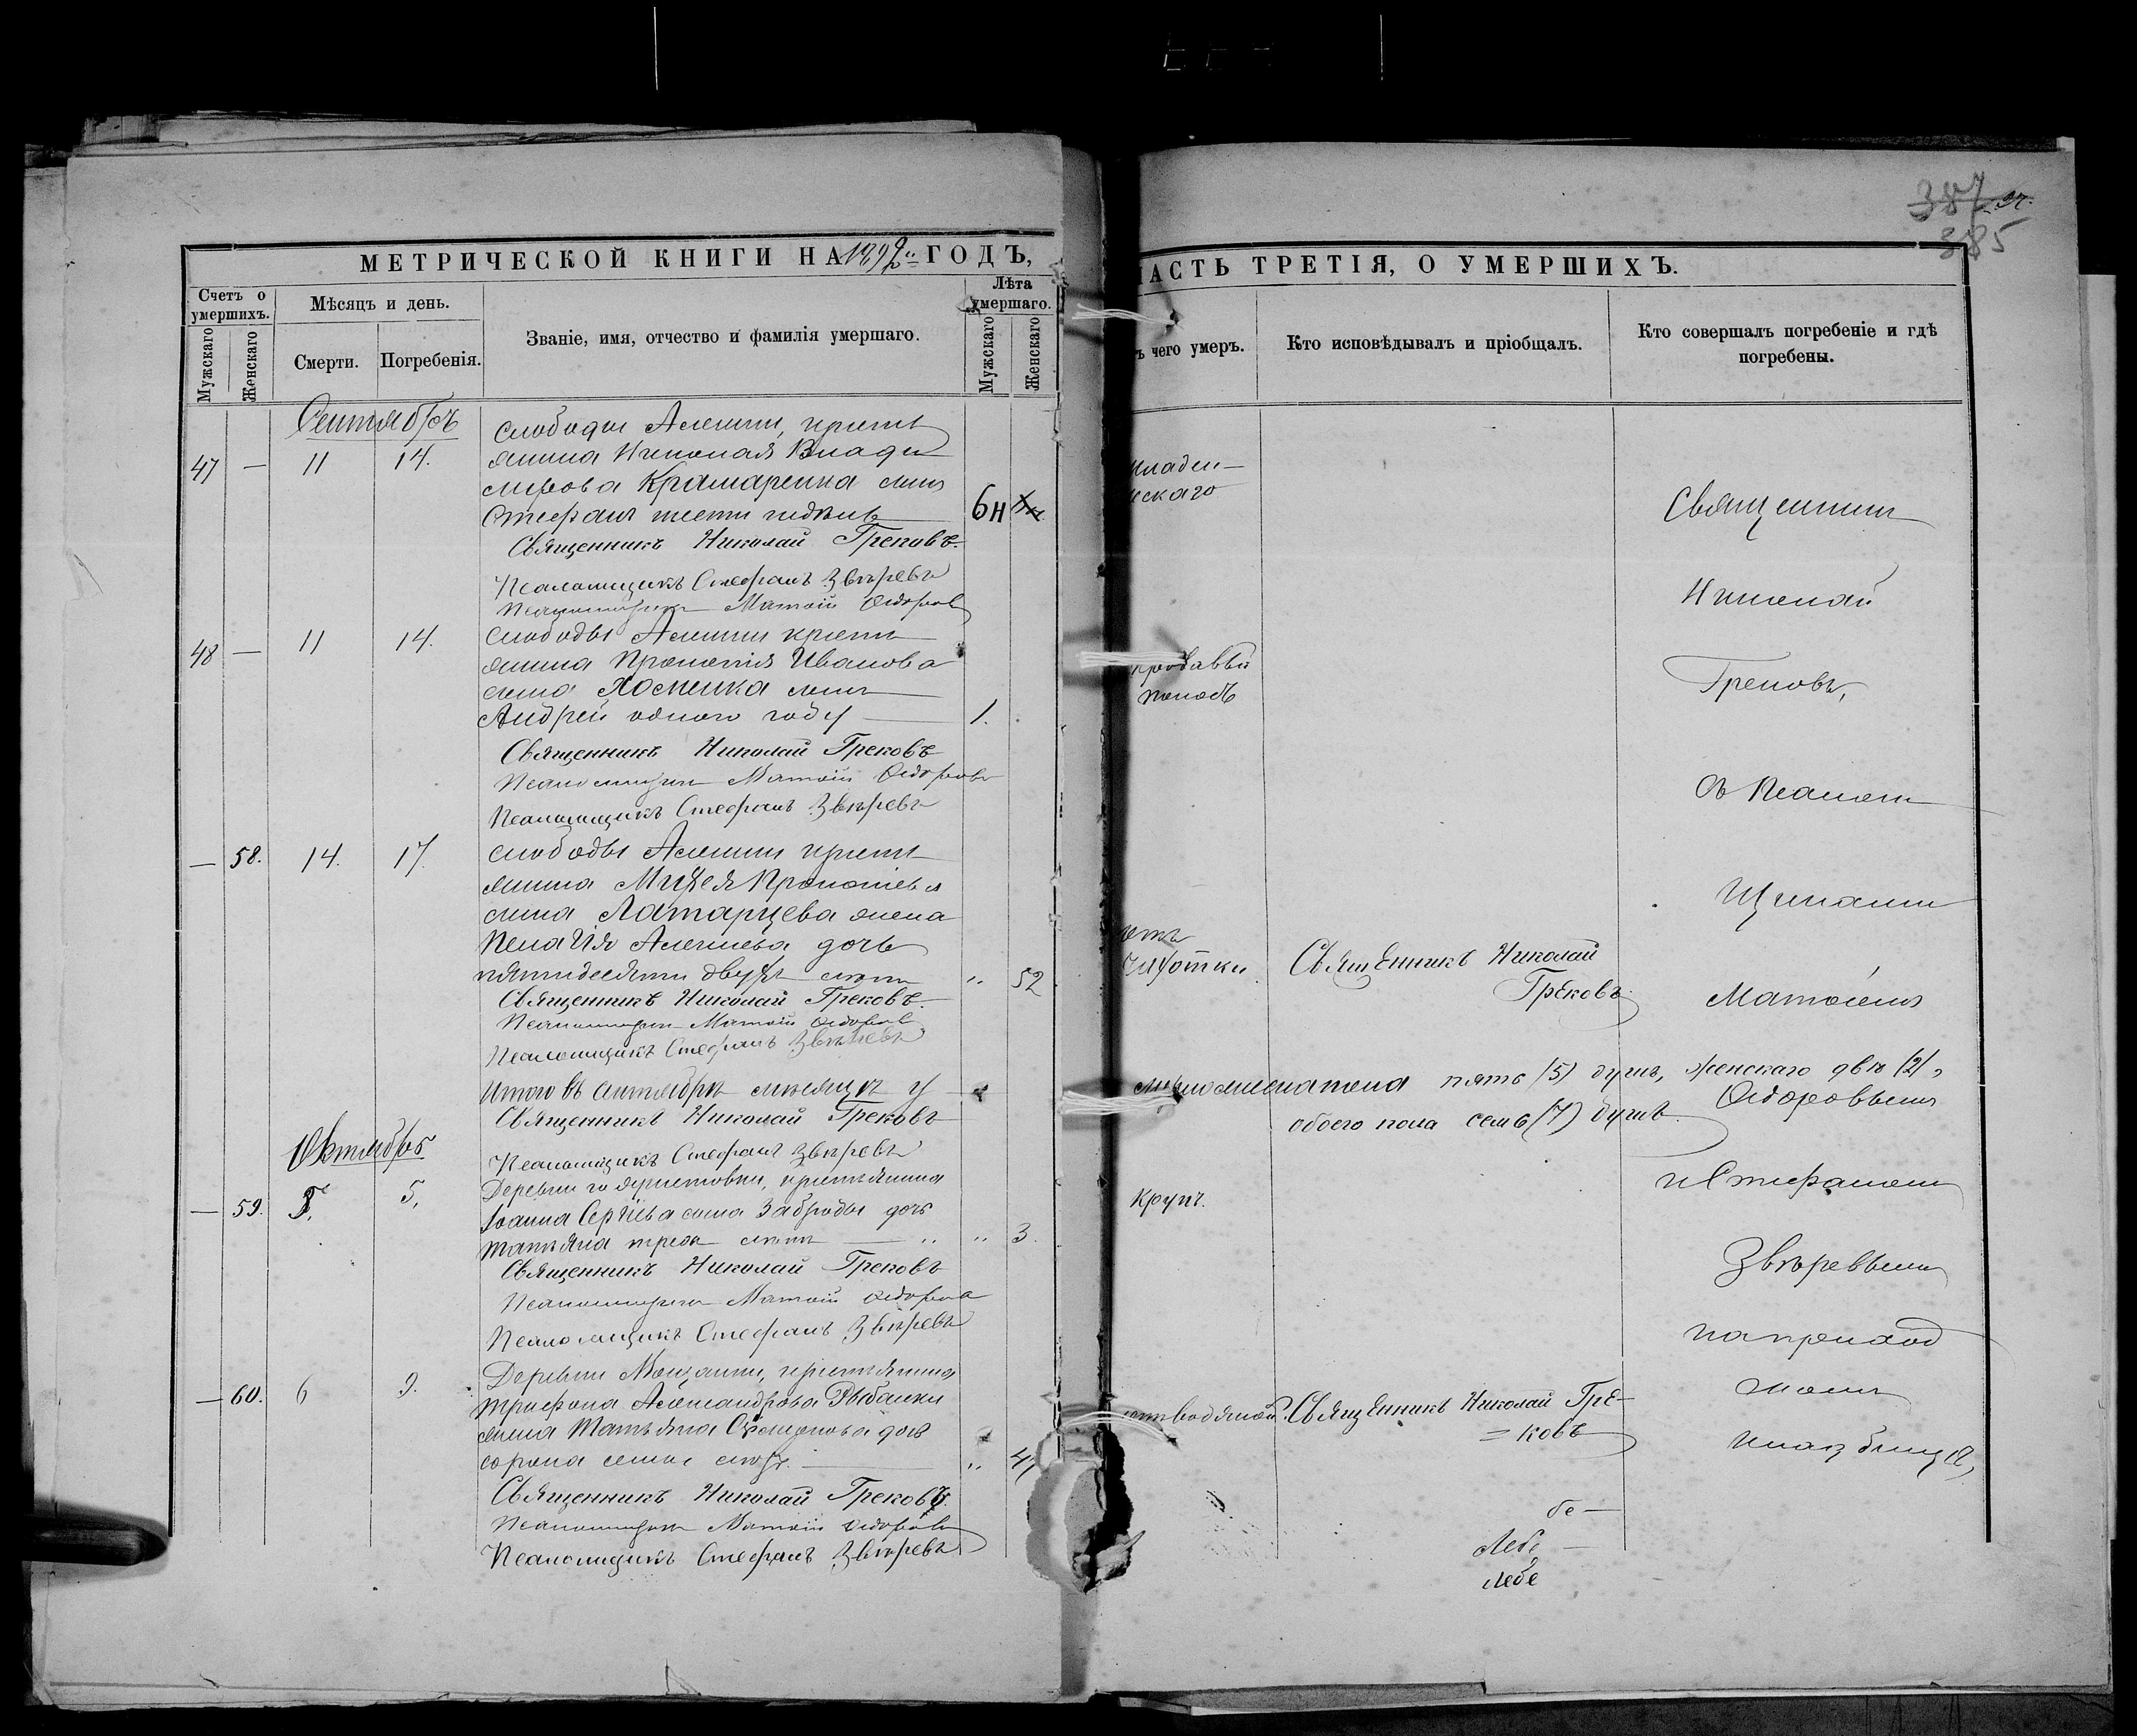 387
385
МЕТРИЧЕСКОЙ КНИГИ НА 1892 ГОДЪ,
Счетъ о умершихъ.
Мужскаго
Женскаго
Мѣсяцъ и день.
Смерти.
Погребенія.
Званіе, имя, отчество и фамилія умершаго.
Лѣта умершаго.
Мужскаго
Женскаго
Сентябрь
47 — 11 14.
слободы Алешки, кресть
янина Николая Влади
мірова Крамаренка сынъ
Стефанъ шести недѣль 6н
Священникъ Николай Грековъ.
Псаломщикъ Стефанъ Звѣревъ
Псаломщикъ Матѳій Ѳедоровъ
48 — 11 14.
слободы Алешки кресть
янина Прокопія Иванова
сына Хоменка сынъ
Андрей одного году — 1.
Священникъ Николай Грековъ
Псаломщикъ Матѳій Ѳедоровъ
Псаломщикъ Стефанъ Звѣревъ
— 58. 14. 17.
слободы Алешки кресть
янина Михея Прокопіева
сына Латарцева жена
Пелагія Алексѣева дочь
пятидесяти двухъ лѣтъ „ 52
Священникъ Николай Грековъ.
Псаломщикъ Матѳій Ѳедоровъ
Псаломщикъ Стефанъ Звѣревъ
Итого въ сентябрѣ мѣсяцѣ у
Священникъ Николай Грековъ
Псаломщикъ Стефанъ Звѣревъ
Октябрь
— 59. 5,
Деревни крестьянина
Іоанна Сергіева сына Заброды дочь
Татьяна трехъ лѣтъ — „ 3.
Священникъ Николай Грековъ
Псаломщикъ Матѳій Ѳедоровъ
Псаломщикъ Стефанъ Звѣревъ
— 60. 6 9.
Деревни крестьянина
Трифона Александрова Рыбалки
жена Татьяна дочь
сорока семи лѣтъ. — „
Священникъ Николай Грековъ.
Псаломщикъ Матѳій Ѳедоровъ
Псаломщикъ Стефанъ Звѣревъ
АСТЬ ТРЕТІЯ, О УМЕРШИХЪ.
ъ чего умеръ.
Кто исповѣдывалъ и пріобщалъ.
Кто совершалъ погребеніе и гдѣ погребены.
младен—
скаго
кровавый
поносъ
отъ
чахотки
Священникъ Николай
Грековъ.
мужескаго пола пять (5) душъ, женскаго двѣ (2),
обоего пола семь (7) душъ.
Крупъ.
отъ водяной.
Священникъ Николай Гре—
=ковъ
Священник
Николай
Грековъ,
съ Псалом
щиками
Матѳіемъ
Ѳедоровымъ
и Стефаномъ
Звѣревымъ
на приход
скомъ
кладбищѣ,
бе—
Лебе—
лебе